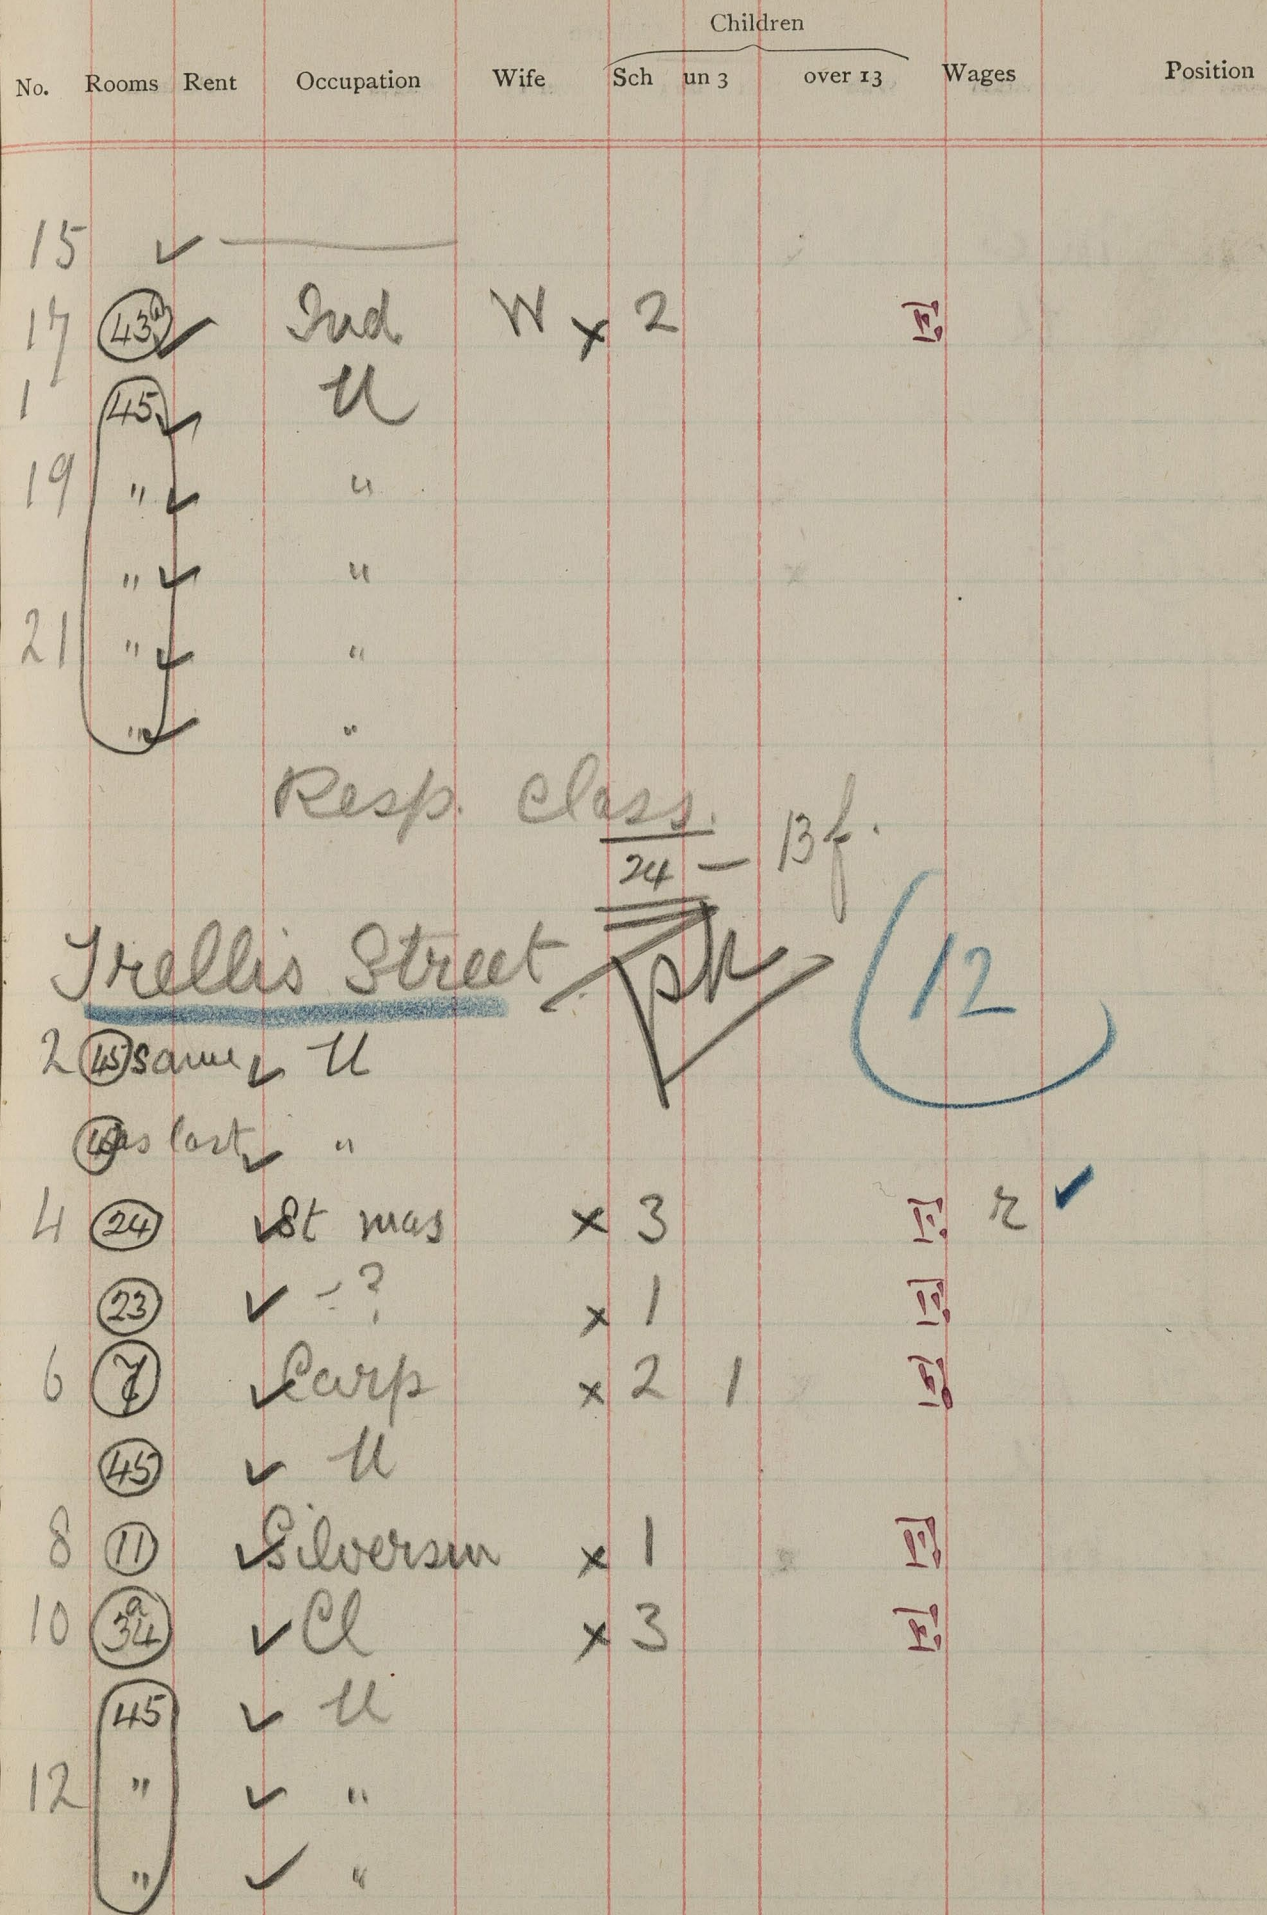 Children
No. Rooms Rent Occupation Wife Sch un 3 over 13 Wages Position
15 ✓ —
17 43 ✓ Ind W x 2 E
1 45 ✓ U
19 " ✓ "
" ✓ "
21 " ✓ "
" ✓ "
Resp. class.
24 — 13 f.
Trellis Street pk 12
2 45 same ✓ U
as last ✓ "
4 24 ✓ St mas x 3 E r ✓
23 ✓ - ? x 1 E
6 7 ✓ Carp x 2 1 E
45 ✓ U
8 11 ✓ Silversm x 1 E
10 34a ✓ Cl x 3 E
45 ✓ U
12 " ✓ "
" ✓ "